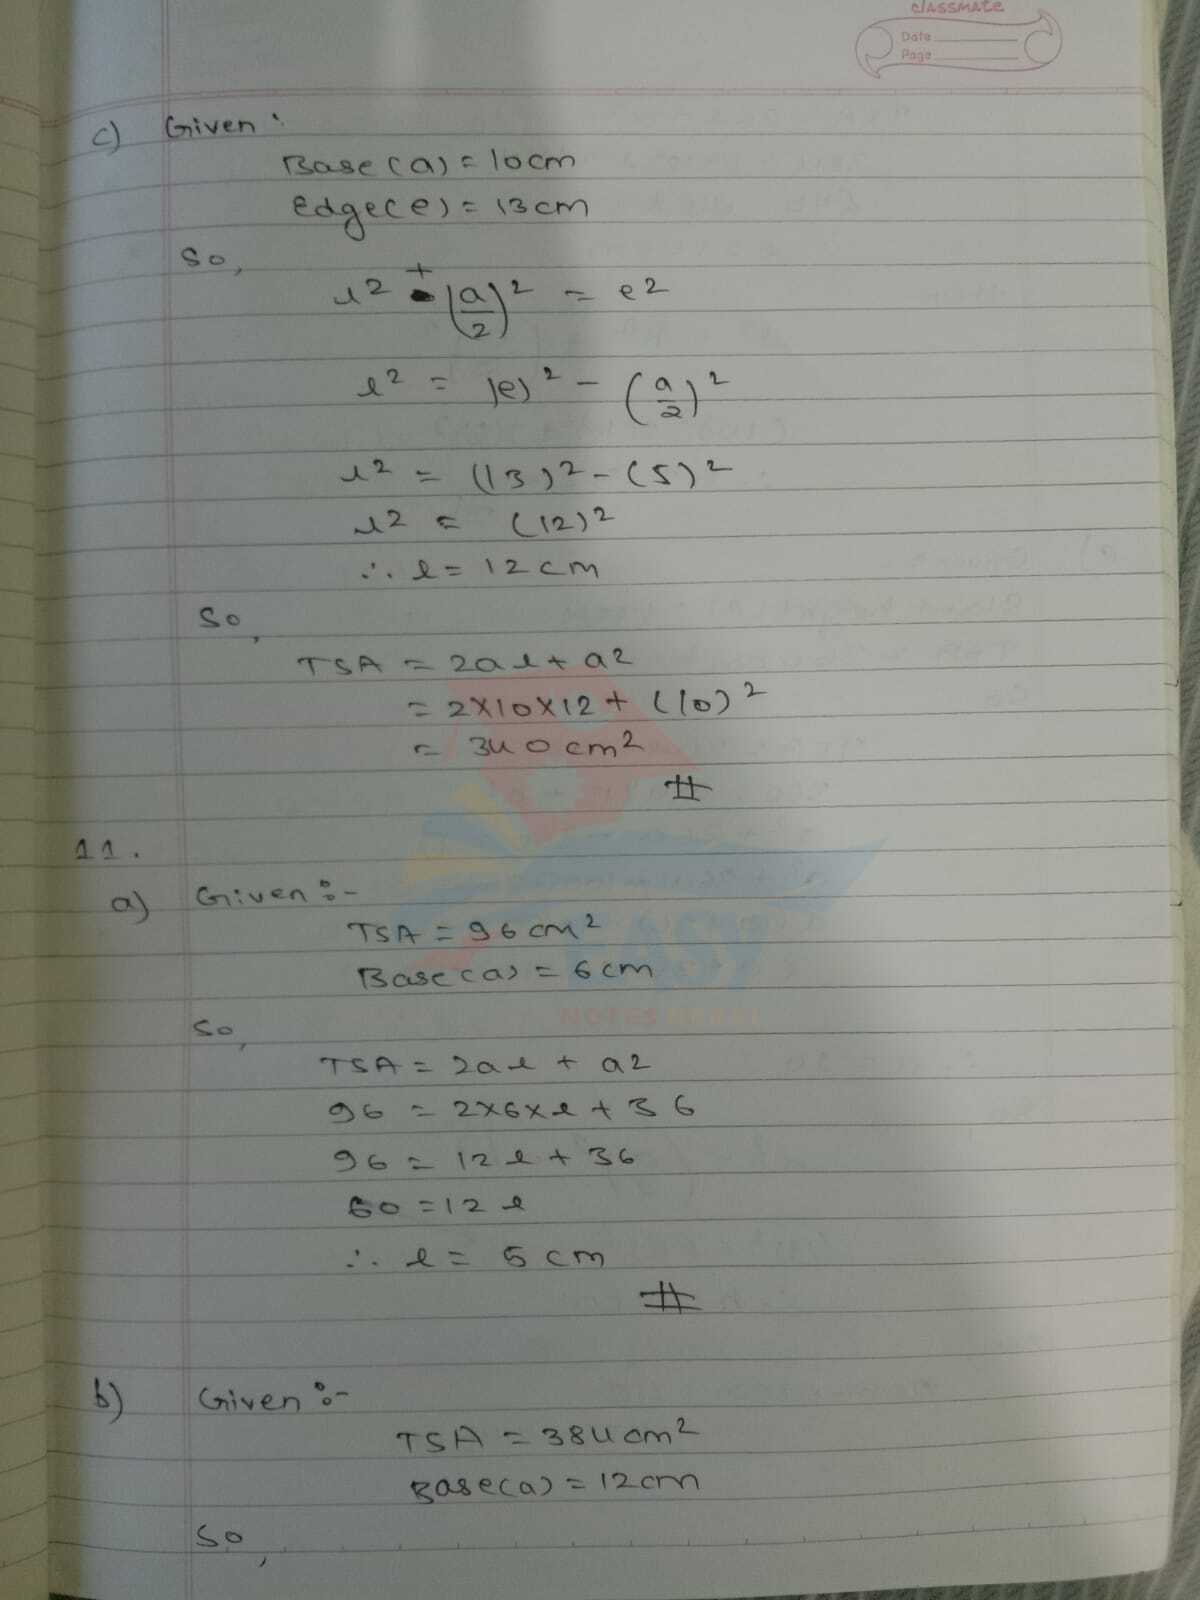 classmate
Date
Page
c) Given:
Base (a) = 10cm
Edge(e) = 13cm
So,
l2 + (a/2)2 = e2
l2 = (e)2 - (a/2)2
l2 = (13)2 - (5)2
l2 = (12)2
∴ l = 12 cm
So,
TSA = 2al + a2
= 2×10×12 + (10)2
= 340 cm2
#
11.
a) Given:-
TSA = 96 cm2
Base(a) = 6cm
EASY
NOTES
So,
TSA = 2al + a2
96 = 2×6×l + 36
96 = 12l + 36
60 = 12l
∴ l = 5 cm
#
b) Given:-
TSA = 384cm2
Base(a) = 12cm
So,